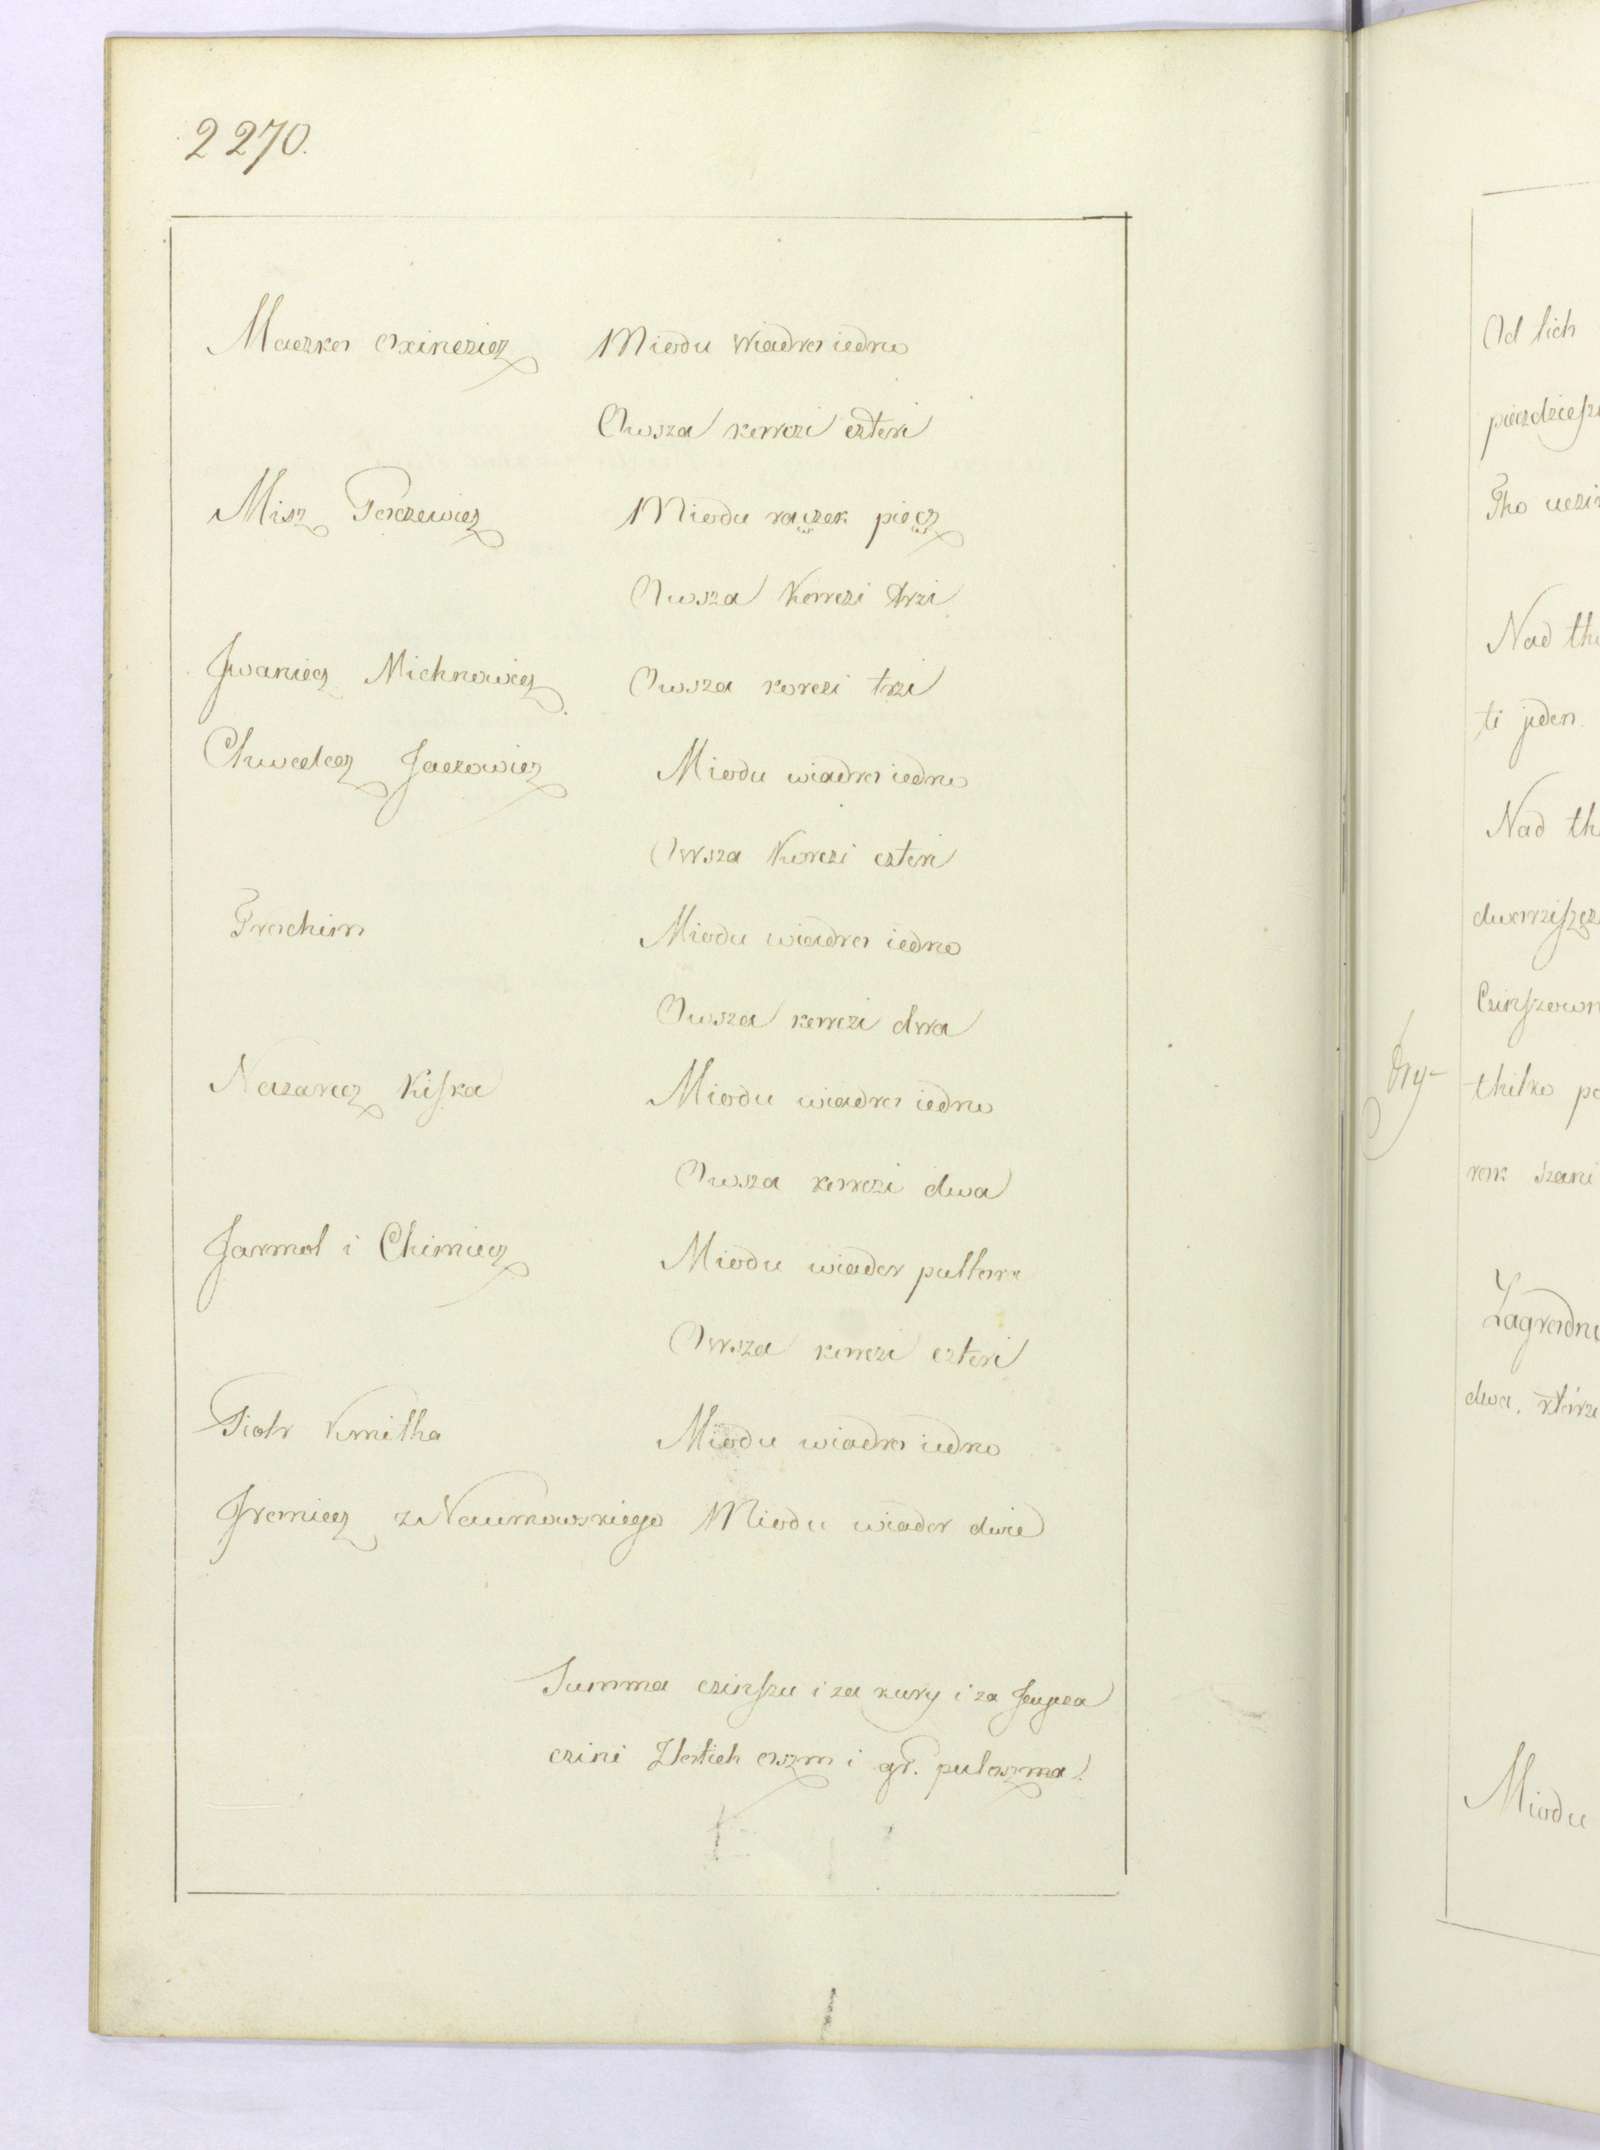 2270.
Maczko Oxinczicz Miodu wiadro iedno
Owsza korczi czteri
Misz Proczewicz Miodu raczek pięcz
Owsza korczi trzi
Jwaniecz Michnowicz Owsza korczi trzi
Chwedecz Jaczowicz Miodu wiadro iedno
Owsza korczi czteri
Prochim Miodu wiadro iedno
Owsza korczi dwa
Nazarecz Kiſka Miodu wiadro iedno
Owsza korczi dwa
Jarmol i Chimiecz Miodu wiader pultora
Owsza korczi czteri
Piotr Kmitha Miodu wiadro iedno
Jremiecz z Naumowskiego Miodu wiader dwie
Summa czinſzu i za kury i za
czini Zlotich oszm i gr. puloszma.
Od ſich
Nad
ti jeden
Nad
dworziſzcz
Czinſzown
Dry-
thilko po
rok szani
Zagrodni
dwa, którzi
Miodu